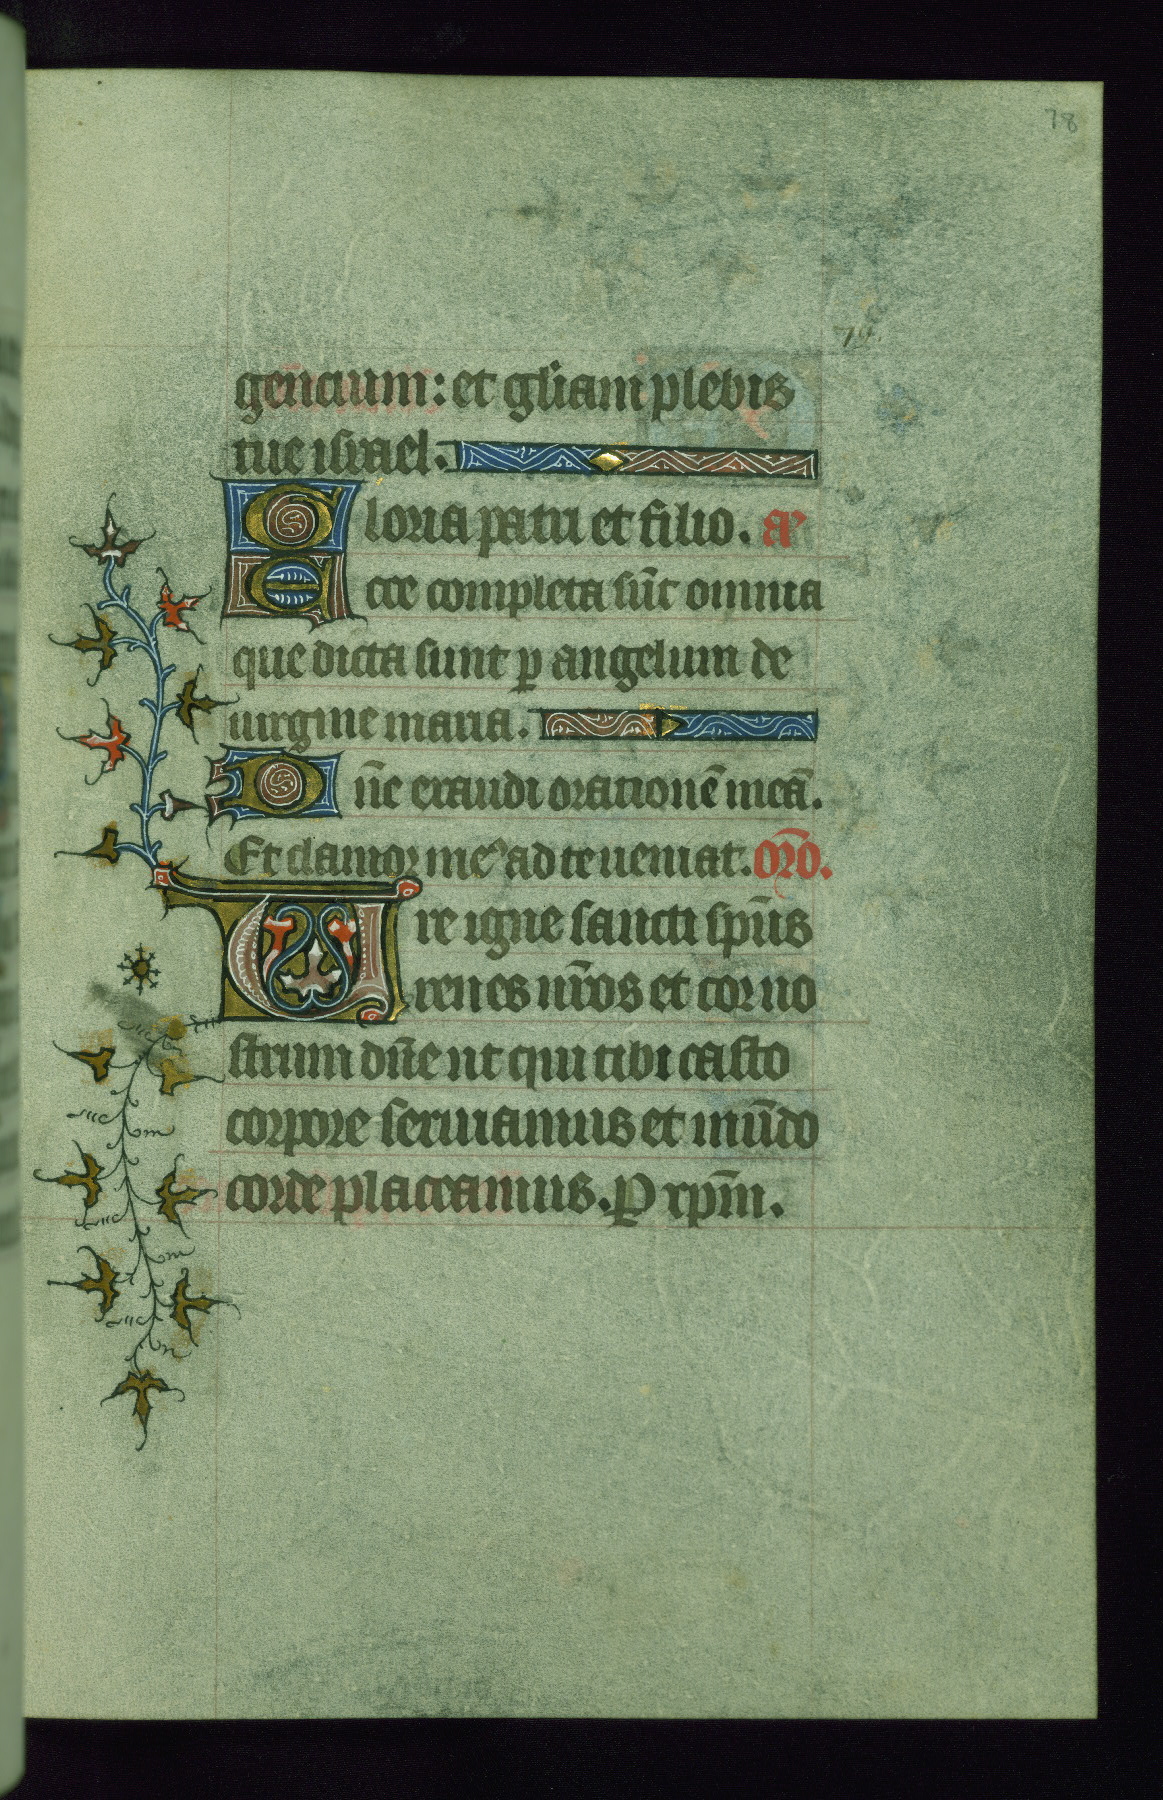 78
79.
gencium: et gl̃iam plebis
tue israel.
Gloria patri et filio. añ
Ecce completa sũt omnia
que dicta sunt ꝑ angelum de
uirgine maria.
Dñe exaudi orationẽ meã.
Et clamor meꝰ ad te ueniat. Orõ.
Ure igne sancti sp̃us
renes nr̃os et cor no
strum dñe ut qui tibi casto
corpore seruiamus et mũdo
corde placeamus. P xp̃m.